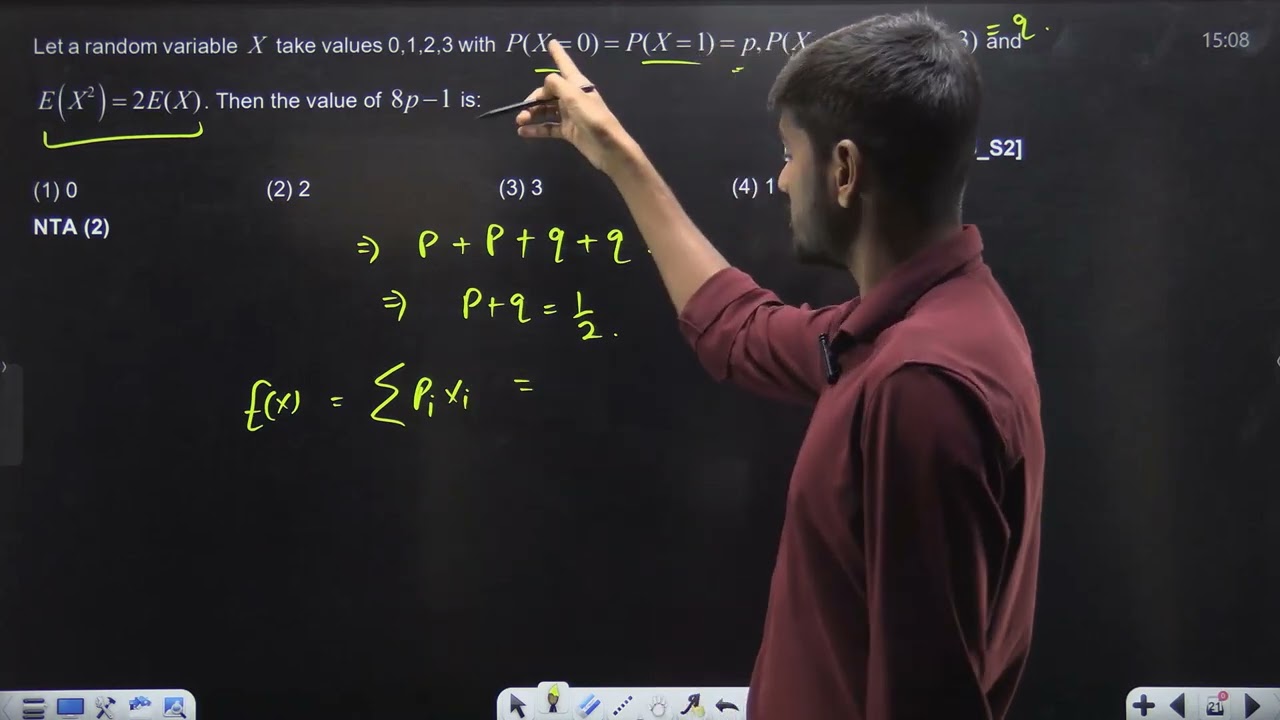 Let a random variable X take values 0,1,2,3 with P(X=0)=P(X=1)=p, P(X 3) and = q.
15:08
E(X²)=2E(X). Then the value of 8p−1 is:
_S2]
(1) 0 (2) 2 (3) 3 (4) 1
NTA (2)
⇒ P + P + q + q
⇒ P+q = 1/2.
E(x) = ∑ Pi xi =
21